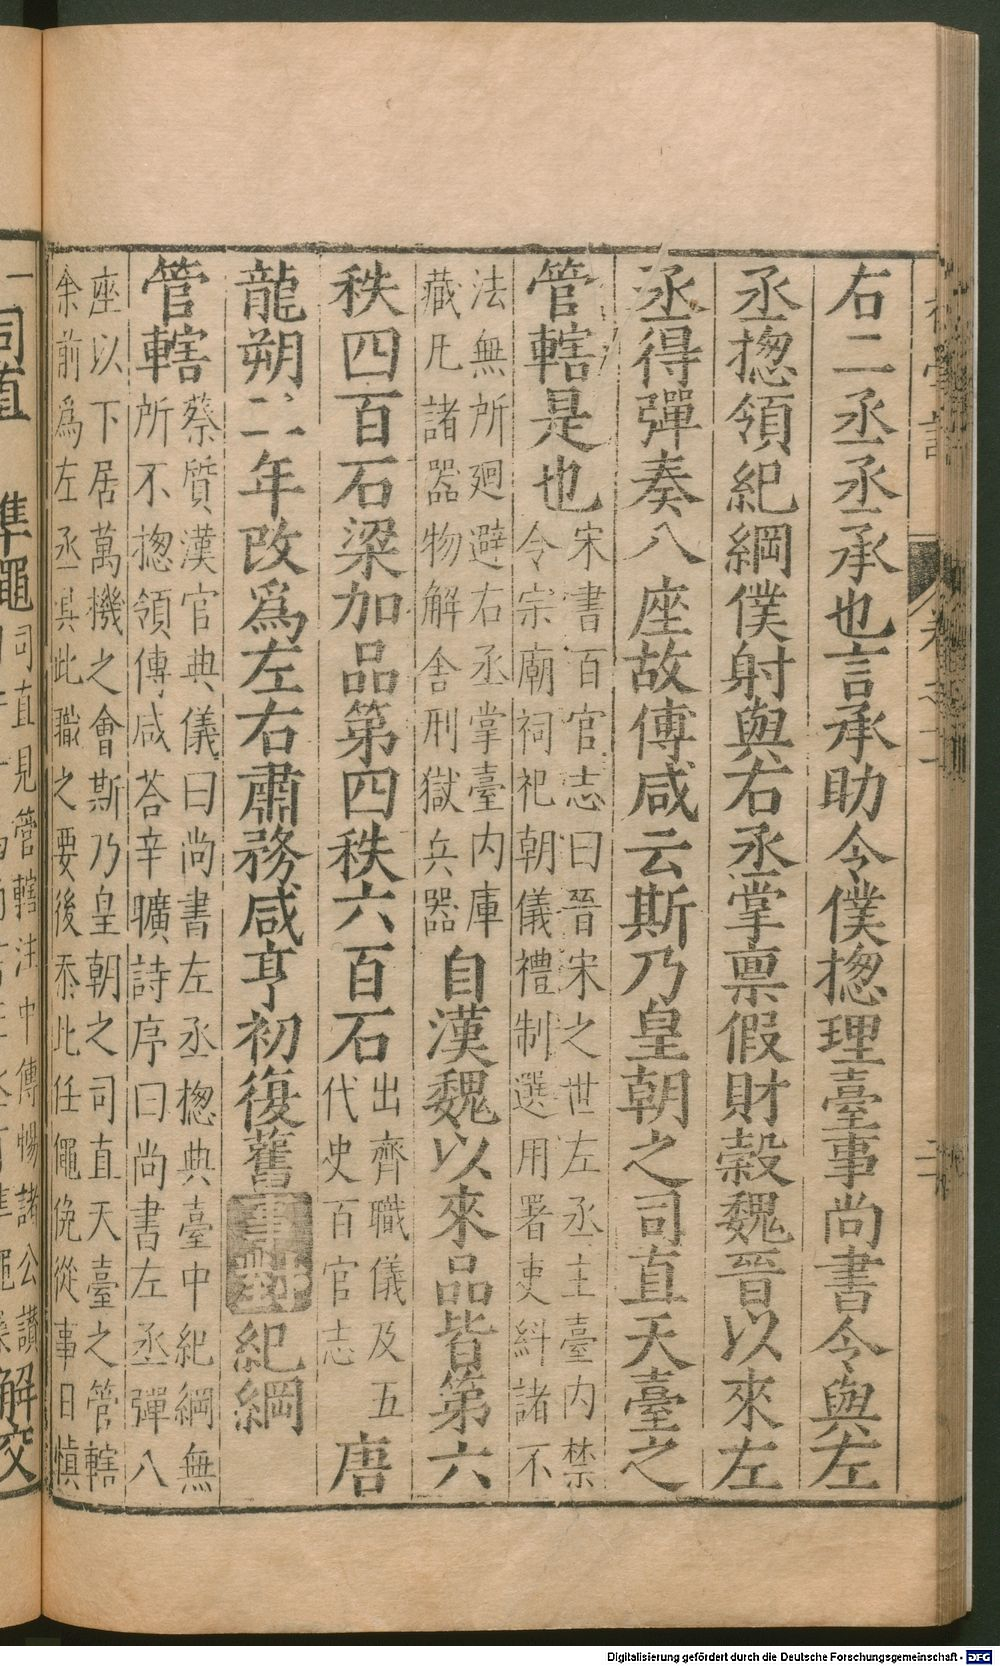 右二丞丞承也言承助令僕揔理臺事尚書令與左
丞揔領紀綱僕射與右丞掌禀假財榖魏晉以來左
丞得彈奏八座故傅咸云斯乃皇朝之司直天臺之
管轄是也
宋書百官志曰晉宋之世左丞主臺内禁
令宗廟祠祀朝儀禮制選用署吏糾諸不
法無所廻避右丞掌臺内庫
藏凡諸器物解舍刑獄兵器
自漢魏以來品皆第六
秩四百石梁加品第四秩六百石
出齊職儀及五
代史百官志
唐
龍朔二年改為左右肅務咸亨初復舊
事對
紀綱
管轄
蔡質漢官典儀曰尚書左丞揔典臺中紀綱無
所不揔領傅咸荅辛曠詩序曰尚書左丞彈八
座以下居萬機之會斯乃皇朝之司直天臺之管轄
余前為左丞具此職之要後忝此任僶俛從事日慎
一
司直
準繩
司直見管轄注中傅暢諸公讚
解交
卷之十
Digitalisierung gefördert durch die Deutsche Forschungsgemeinschaft - DFG